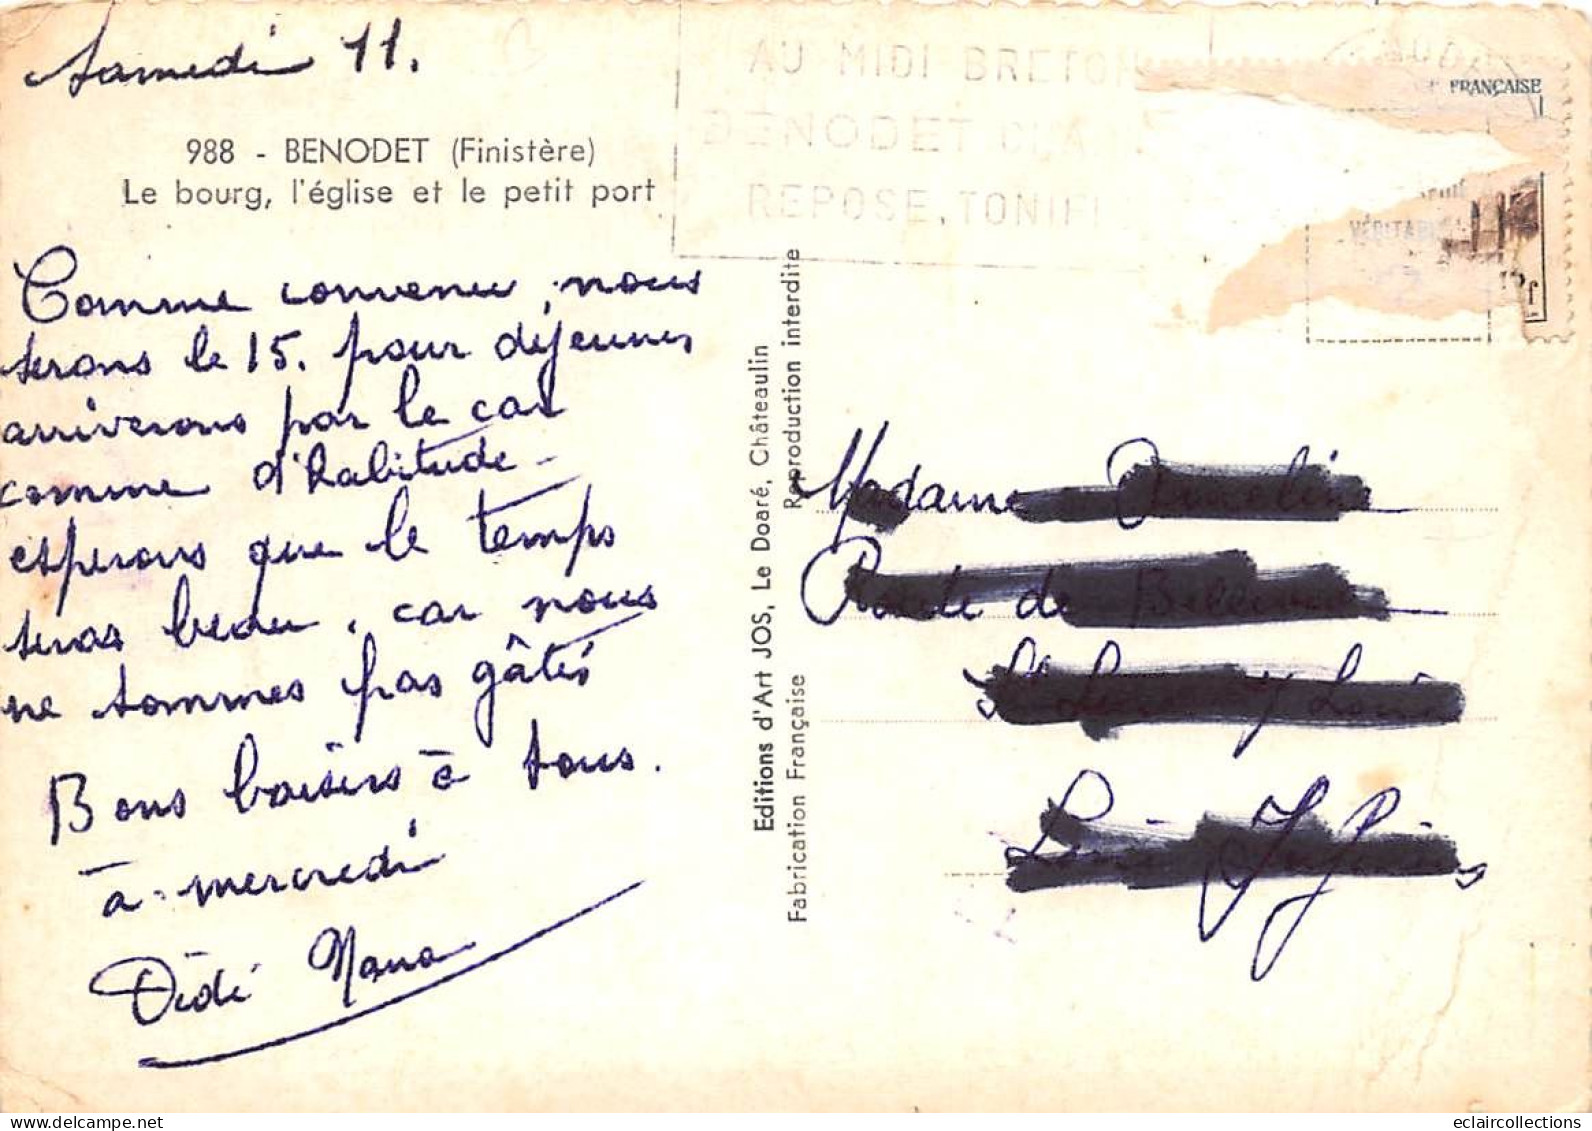 Samedi 11.
988 - BENODET (Finistère)
Le bourg, l'église et le petit port
AU MIDI BRETON
BENODET
REPOSE, TONIFI
FRANÇAISE
Comme convenu, nous
serons le 15. pour déjeuner
arriverons par le car
comme d'habitude -
espérons que le temps
sera beau, car nous
ne sommes pas gâtés
Bons baisers à tous.
à mercredi
Dédé Nana
Editions d'Art JOS, Le Doaré, Châteaulin
Reproduction interdite
Fabrication Française
Madame
eclaircollections